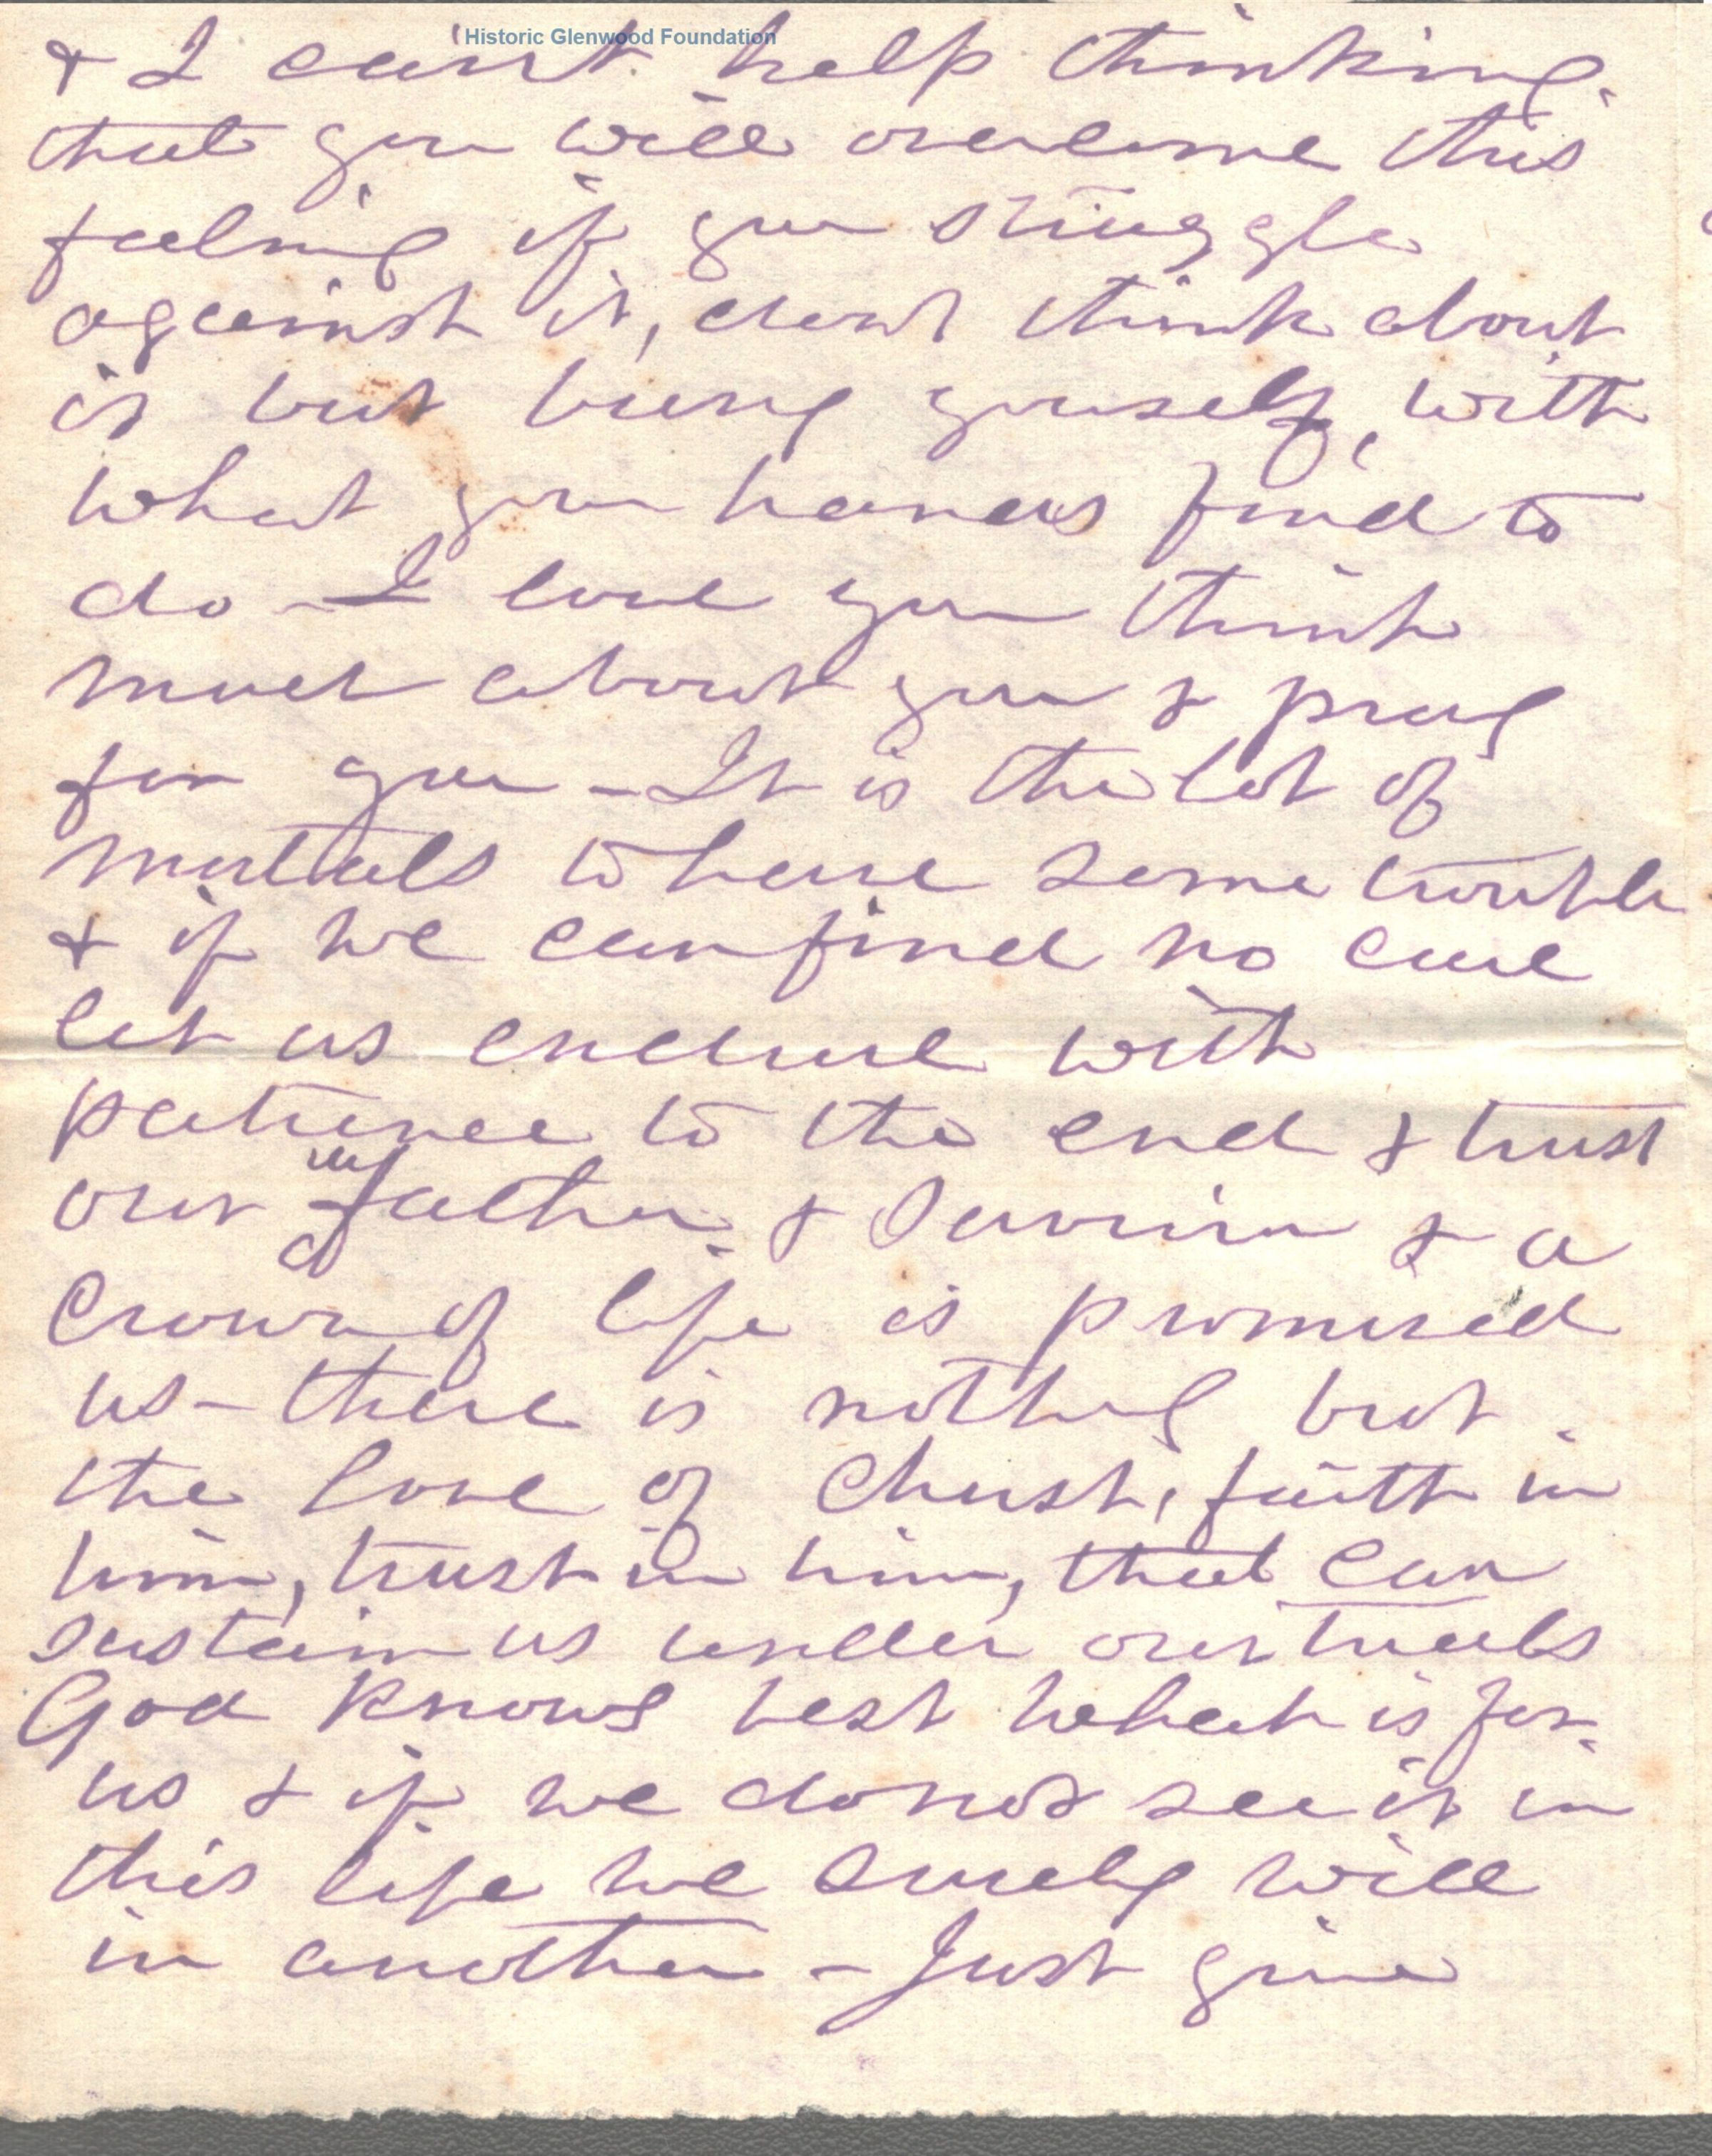 Historic Glenwood Foundation
& I can't help thinking
that you will overcome this
feeling if you struggle
against it, dont think about
it but busy yourself, with
what your hands find to
do - I love you think
much about you & pray
for you - It is the lot of
mortals to have some trouble
& if we can find no cure
let us endure with
patience to the end & trust
in
our father & Saviour & a
crown of life is promised
us - there is nothing but
the love of Christ, faith in
him, trust in him, that can
sustain us under our trials
God knows best what is for
us & if we do not see it in
this life we surely will
in another - Just give